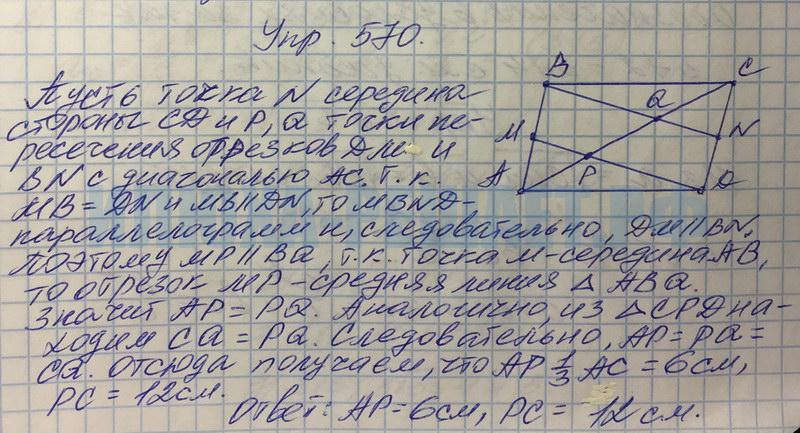 Упр. 570.
Пусть точка N середина
стороны CD и P, Q точки пе-
ресечения отрезков DM и
BN с диагональю AC. Т. к.
MB = DN и MB || DN, то MBND -
параллелограмм и, следовательно, DM || BN.
Поэтому MP || BQ, т.к. точка M - середина AB,
то отрезок MP - средняя линия △ ABQ.
Значит AP = PQ. Аналогично, из △ CPD на-
ходим CQ = PQ. Следовательно, AP = PQ =
CQ. Отсюда получаем, что AP 1/3 AC = 6 см,
PC = 12 см.
Ответ: AP = 6 см, PC = 12 см.
B
C
Q
M
N
A
P
D